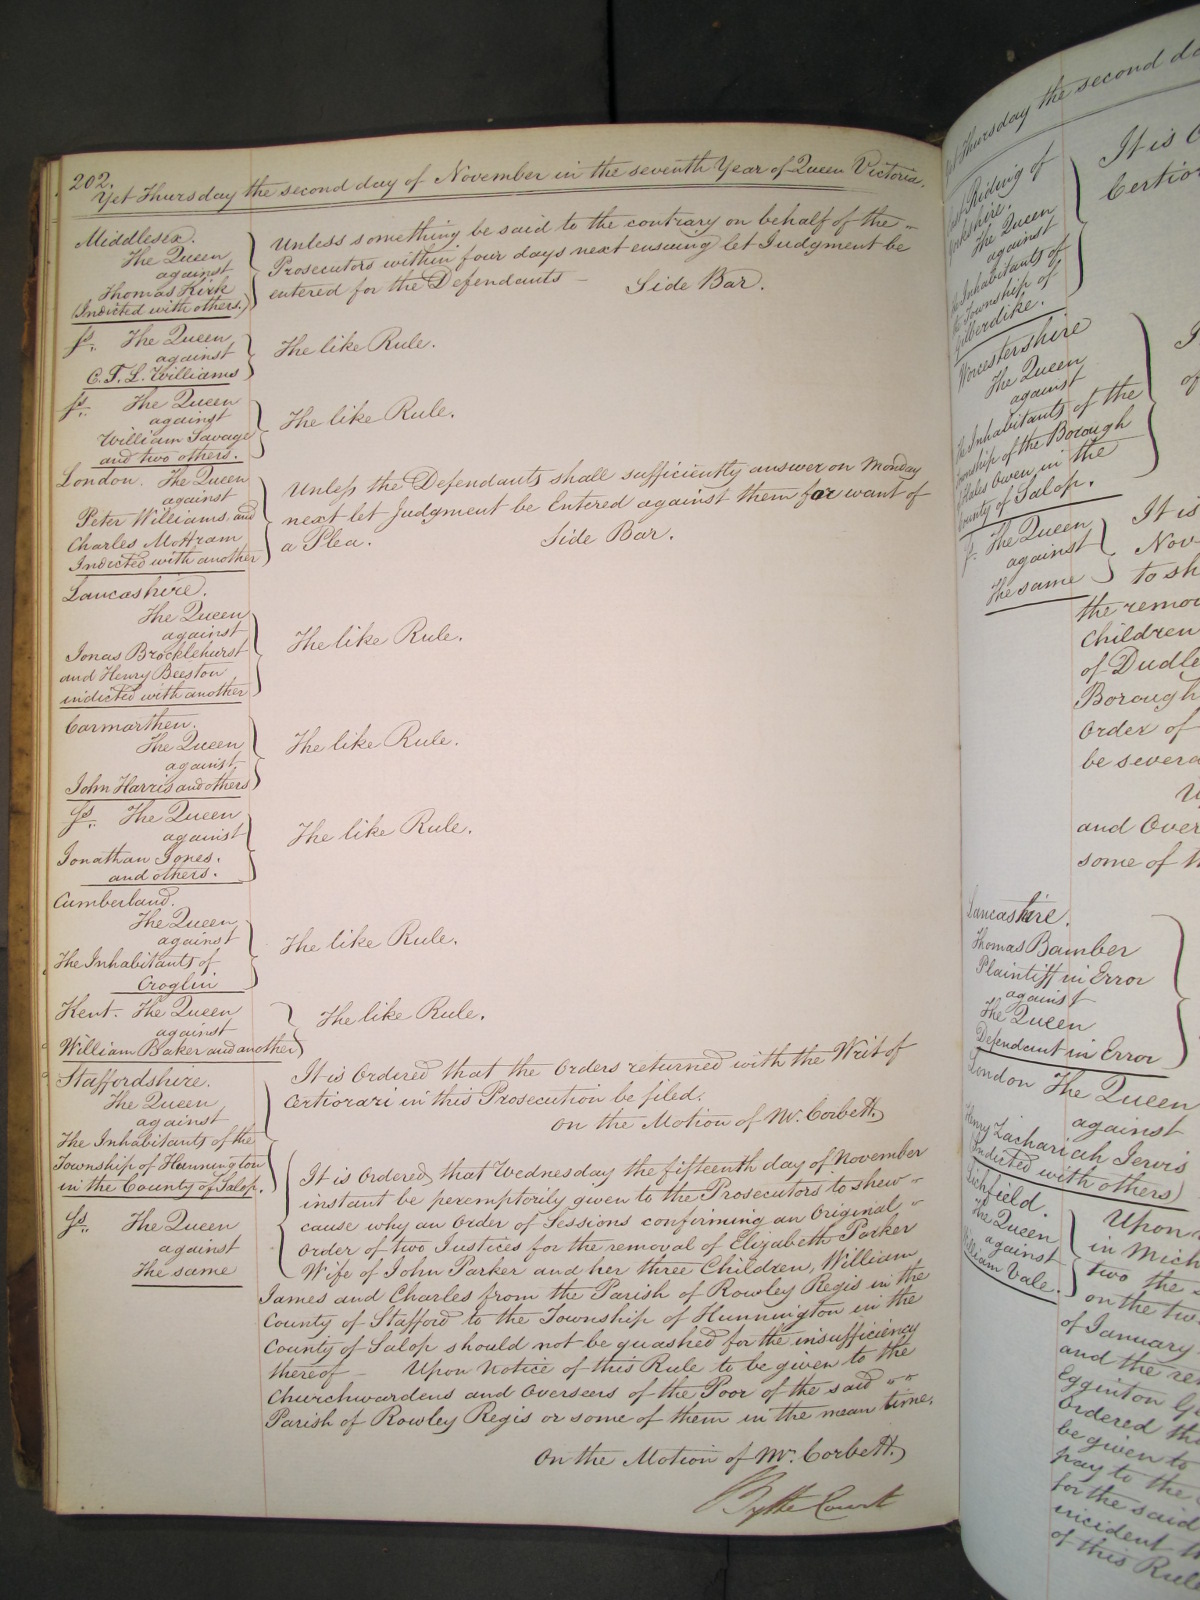 202.
Yet Thursday the second day of November in the seventh Year of Queen Victoria.
Middlesex.
The Queen
against
Thomas Kirk
(Indicted with others.)
Unless something be said to the contrary on behalf of the "
Prosecutors within four days next ensuing let Judgment be
entered for the Defendants — Side Bar.
ss. The Queen
against
C. F. L. Williams
The like Rule.
ss. The Queen
against
William Savage
and two others.
The like Rule.
London. The Queen
against
Peter Williams and
Charles Mottram
Indicted with another
Unless the Defendants shall sufficiently answer on Monday
next let Judgment be Entered against them for want of
a Plea. Side Bar.
Lancashire.
The Queen
against
Jonas Brocklehurst
and Henry Beeston
indicted with another
The like Rule.
Carmarthen.
The Queen
against
John Harris and others
The like Rule.
ss. The Queen
against
Jonathan Jones.
and others.
The like Rule.
Cumberland.
The Queen
against
The Inhabitants of
Croglin
The like Rule.
Kent. The Queen
against
William Baker and another
The like Rule.
Staffordshire.
The Queen
against
The Inhabitants of the
Township of Hunnington
in the County of Salop.
It is Ordered that the Orders returned with the Writ of
Certiorari in this Prosecution be filed.
On the Motion of Mr. Corbett.
ss. The Queen
against
The same
It is Ordered that Wednesday the fifteenth day of November
instant be peremptorily given to the Prosecutors to shew "
cause why an Order of Sessions confirming an Original "
Order of two Justices for the removal of Elizabeth Parker
Wife of John Parker and her three Children, William
James and Charles from the Parish of Rowley Regis in the
County of Stafford to the Township of Hunnington in the
County of Salop should not be quashed for the insufficiency
thereof — Upon Notice of this Rule to be given to the
Churchwardens and Overseers of the Poor of the said " "
Parish of Rowley Regis or some of them in the mean time.
On the Motion of Mr. Corbett.
By the Court
Thursday the second
Riding of
The Queen
against
Inhabitants of
Township of
Gilberdike.
It is
Certior
Worcestershire
The Queen
against
The Inhabitants of the
Township of the Borough
of Hales Owen in the
County of Salop.
ss. The Queen
against
The same
It is
Nov
to sh
the remov
Children
of Dudle
Borough
Order of
be severa
and Over
some of
Lancashire.
Thomas Bamber
Plaintiff in Error
against
The Queen
Defendant in Error
London The Queen
against
Henry Zachariah Jervis
(Indicted with others)
Lichfield.
The Queen
against
William Vale.
Upon
in Mich
two the
on the tw
of January
and the re
Egginton
Ordered tha
be given to
pay to the
for the said
incident
of this Rule